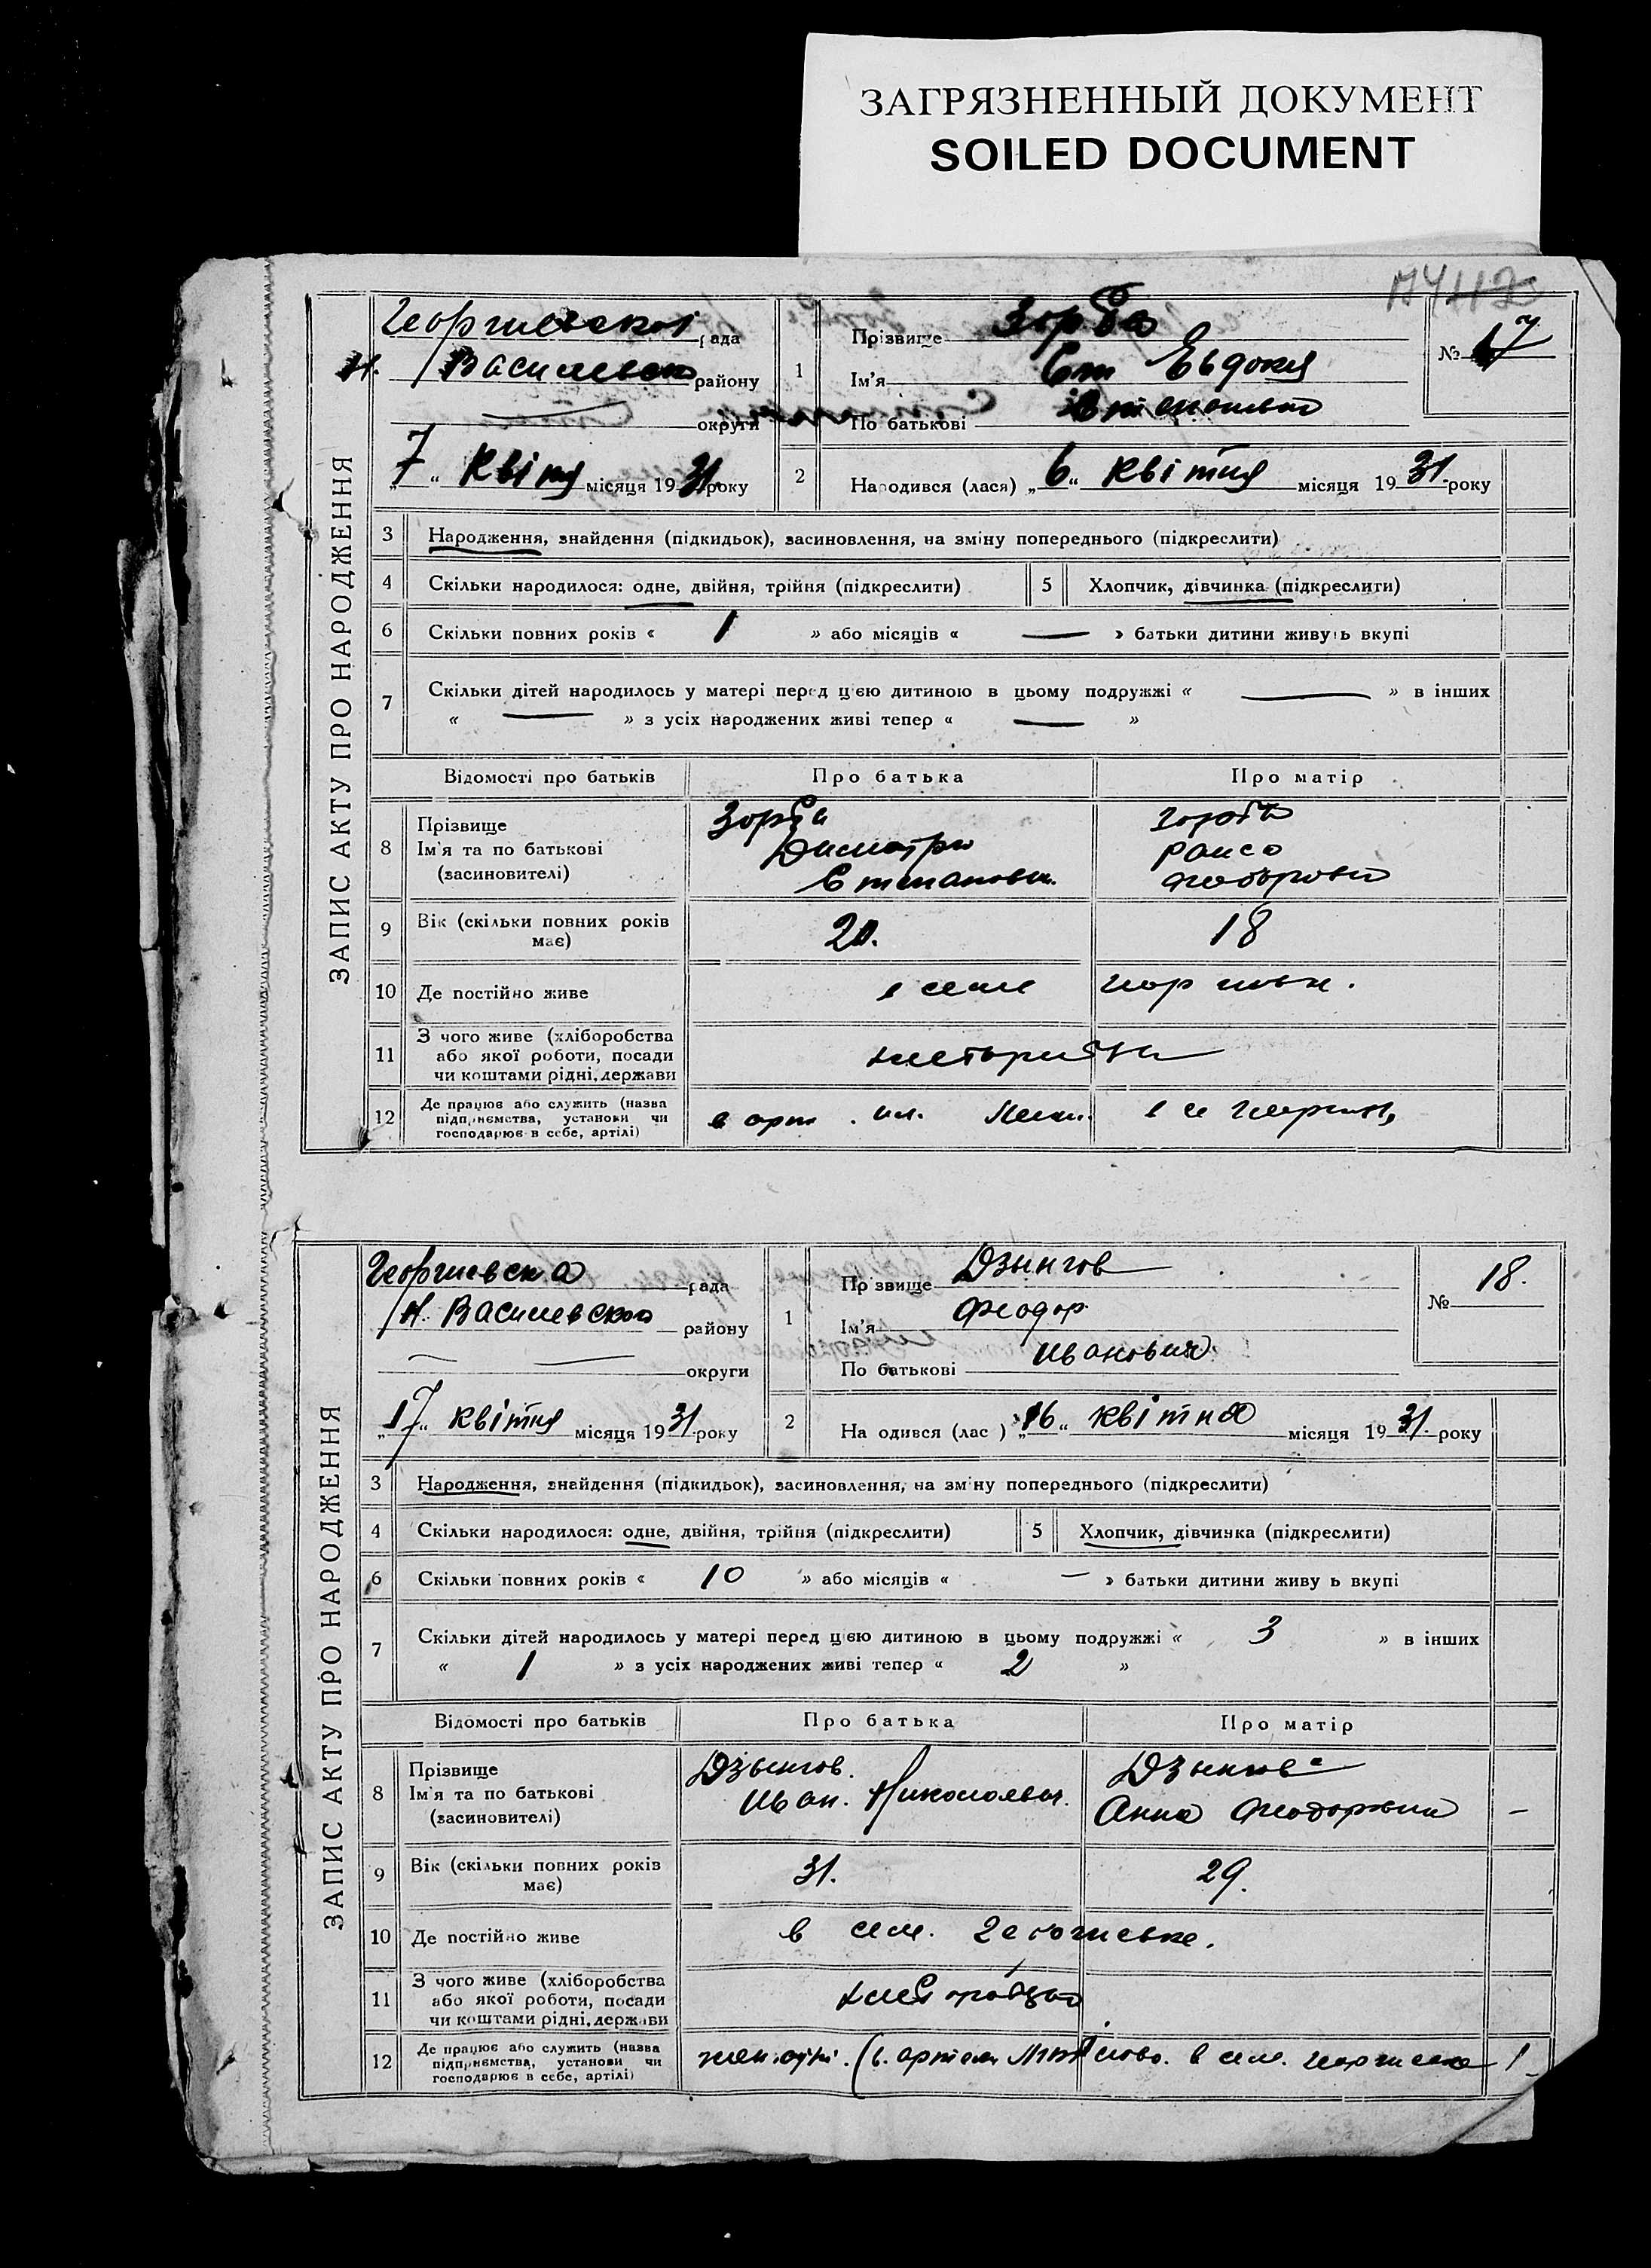 ЗАГРЯЗНЕННЫЙ ДОКУМЕНТ
SOILED DOCUMENT
ЗАПИС АКТУ ПРО НАРОДЖЕННЯ
Георгиевской рада
Н. Василевско району
округи
„7“ Квітня місяця 1931 року
1 Прізвище Зорба
Ім'я Евдокия
По батькові
№ 17
2 Народився (лася) „6“ Квітня місяця 1931. року
3 Народження, знайдення (підкидьок), засиновлення, на зміну попереднього (підкреслити)
4 Скільки народилося: одне, двійня, трійня (підкреслити) 5 Хлопчик, дівчинка (підкреслити)
6 Скільки повних років « 1 » або місяців « — » батьки дитини живуть вкупі
7 Скільки дітей народилось у матері перед цією дитиною в цьому подружжі « — » в інших
« — » з усіх народжених живі тепер « — »
Відомості про батьків Про батька Про матір
8 Прізвище
Ім'я та по батькові
(засиновителі)
Зорба
Дмитри
Степанови.
Зорба
Раиса
Феодоровна
9 Вік (скільки повних років має) 20. 18
10 Де постійно живе в селе
11 З чого живе (хліборобства
або якої роботи, посади
чи коштами рідні, держави
12 Де працює або служить (назва
підприємства, установи чи
господарює в себе, артілі)
в арт. им.
ЗАПИС АКТУ ПРО НАРОДЖЕННЯ
Георгиевска рада
Н. Василевского району
— — округи
„17“ квітня місяця 1931 року
1 Прізвище Дзынгов
Ім'я Феодор
По батькові Иванович
№ 18.
2 Народився (лас ) „16“ квітня місяця 1931. року
3 Народження, знайдення (підкидьок), засиновлення, на зміну попереднього (підкреслити)
4 Скільки народилося: одне, двійня, трійня (підкреслити) 5 Хлопчик, дівчинка (підкреслити)
6 Скільки повних років « 10 » або місяців « — » батьки дитини живу ь вкупі
7 Скільки дітей народилось у матері перед цією дитиною в цьому подружжі « 3 » в інших
« 1 » з усіх народжених живі тепер « 2 »
Відомості про батьків Про батька Про матір
8 Прізвище
Ім'я та по батькові
(засиновителі)
Дзынгов.
Иван. Николаевич.
Дзынгова
Анна Феодоровна
9 Вік (скільки повних років має) 31. 29.
10 Де постійно живе в селе.
11 З чого живе (хліборобства
або якої роботи, посади
чи коштами рідні, держави
12 Де працює або служить (назва
підприємства, установи чи
господарює в себе, артілі)
в селе. Георгиевке